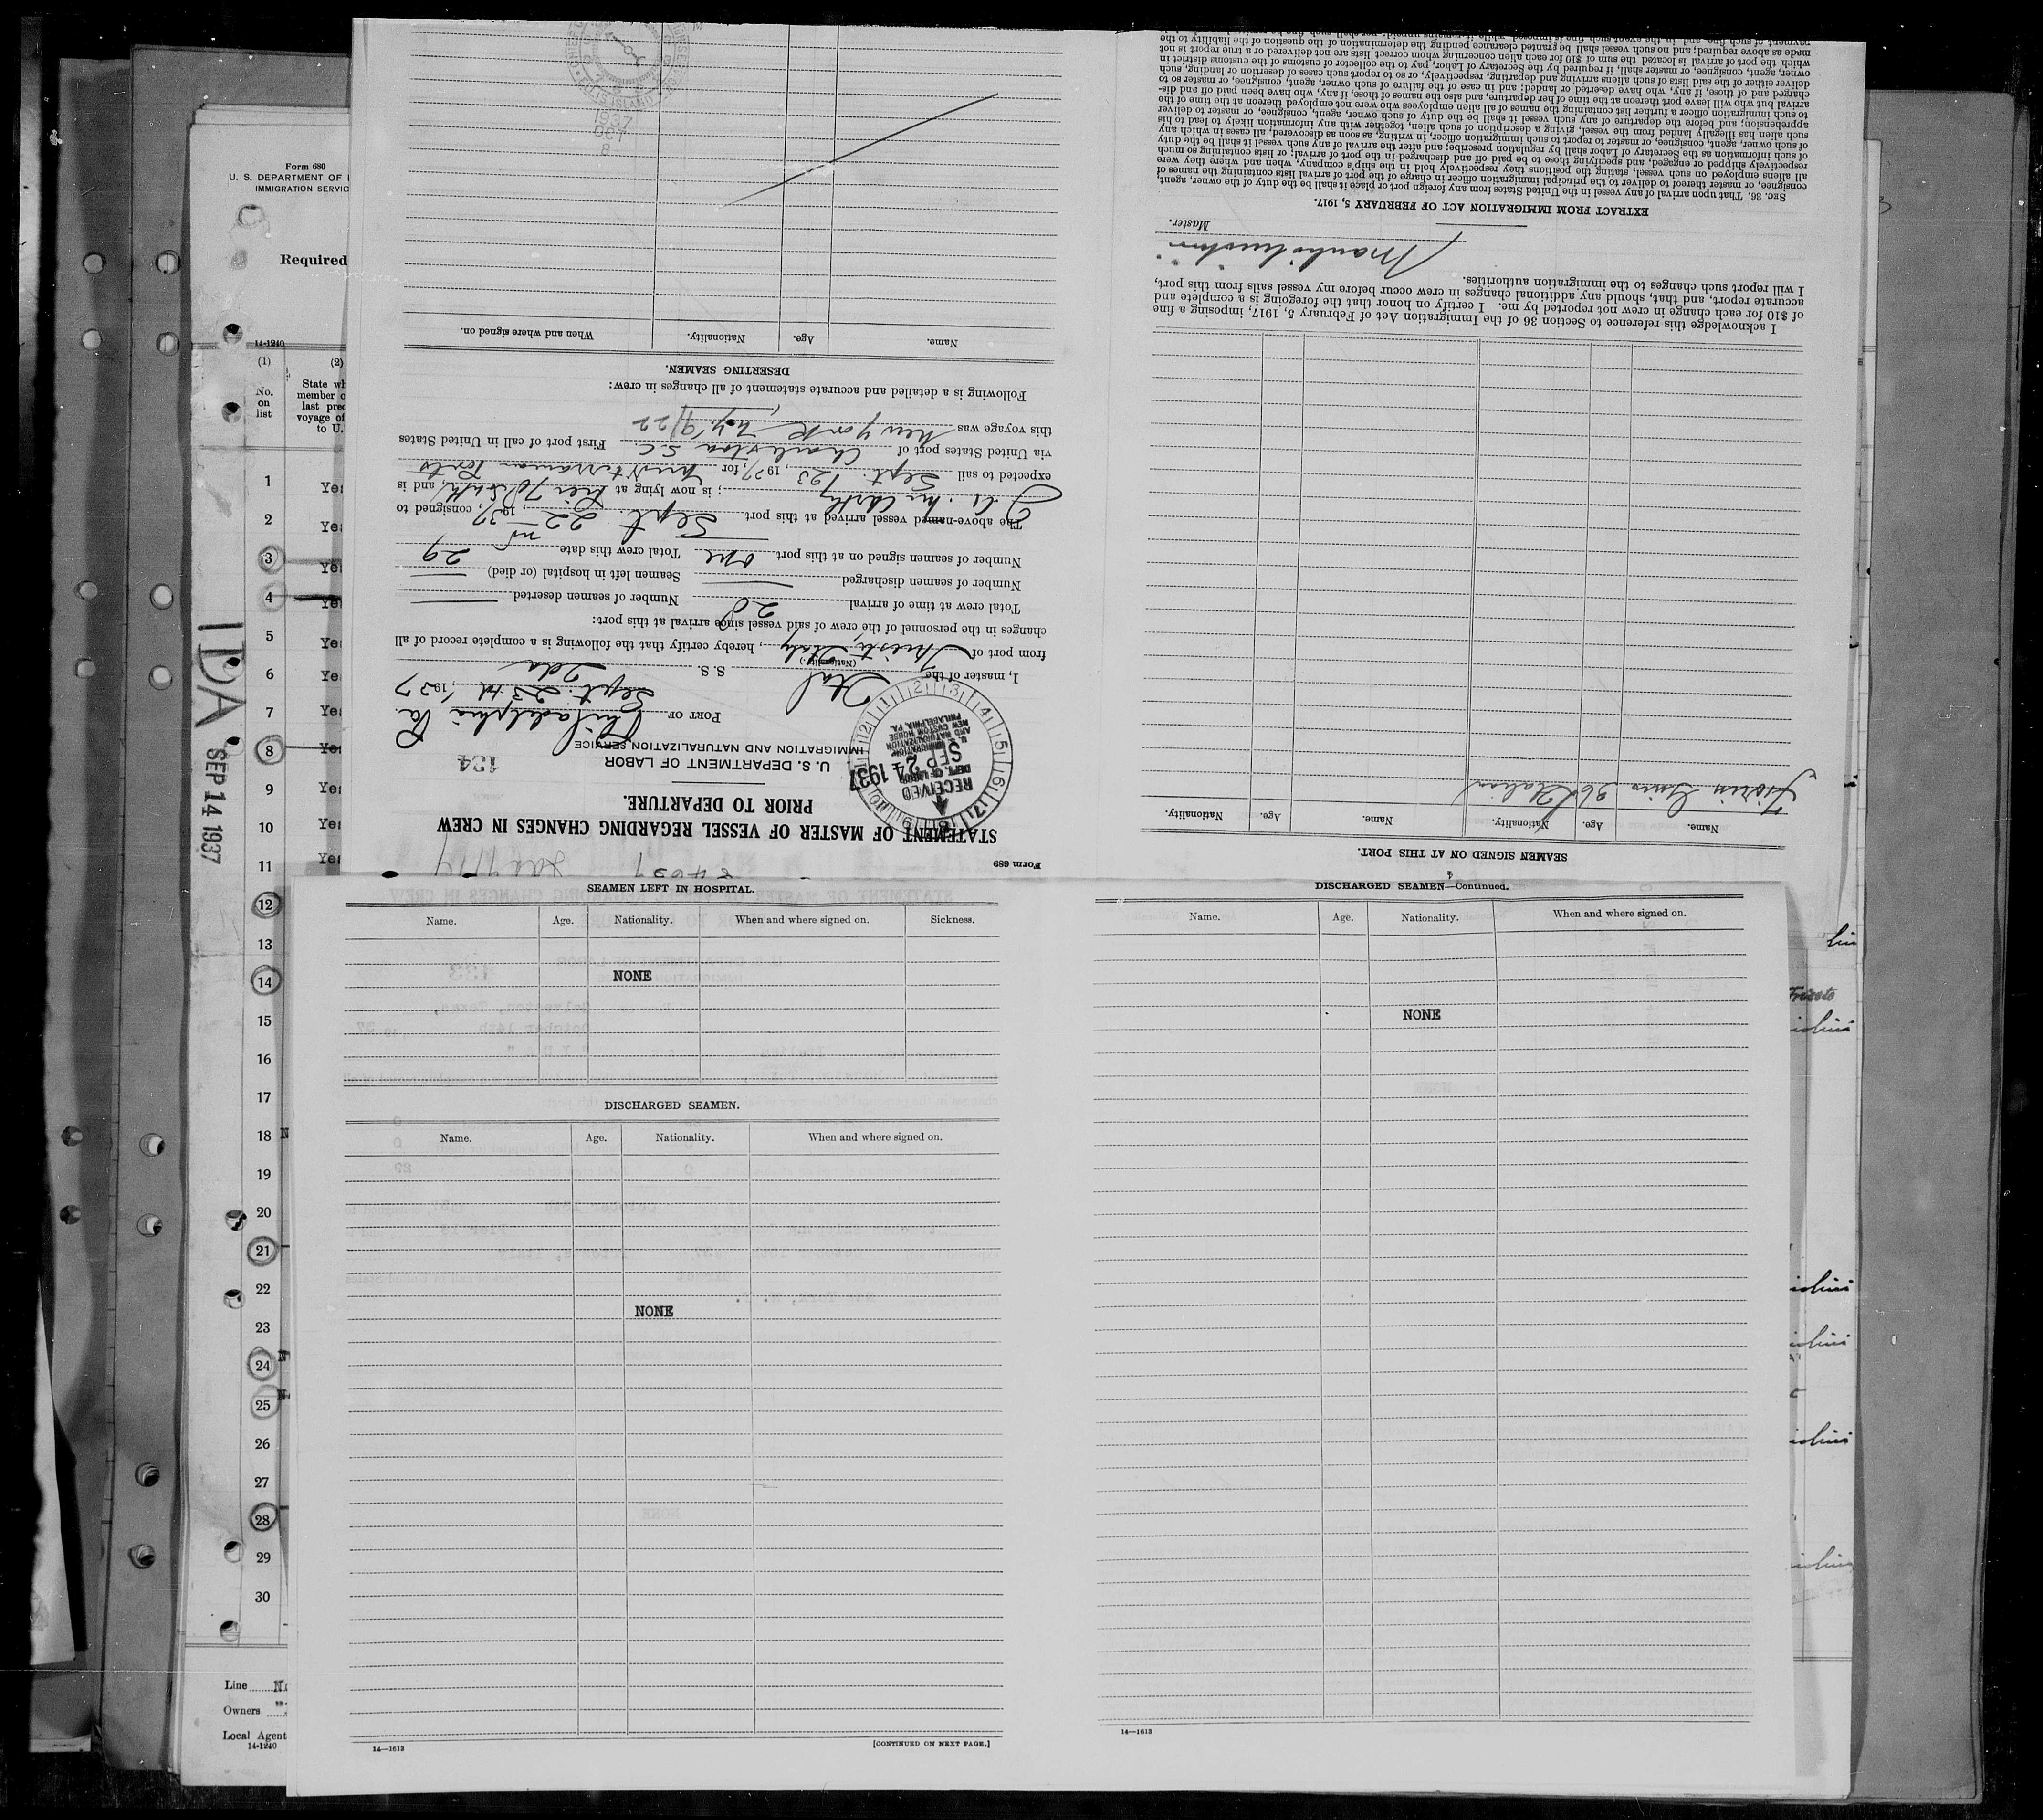 Form 680
U. S. DEPARTMENT OF
IMMIGRATION SERVIC
Required
14-1240
(1) (2)
No. on list
State wh
member o
last prec
voyage of
to U.
1 Yes
2 Yes
3 Yes
4 Yes
5 Yes
6 Yes
7 Yes
8 Yes
9 Yes
10 Yes
11 Yes
12
13
14
15
16
17
18 N
19
20
21
22
23
24 N
25 N
26
27
28
29
30
IDA
SEP 14 1937
Line
Owners
Local Agent
14-1240
Form 689
STATEMENT OF MASTER OF VESSEL REGARDING CHANGES IN CREW
PRIOR TO DEPARTURE.
U. S. DEPARTMENT OF LABOR
IMMIGRATION AND NATURALIZATION SERVICE
134
RECEIVED
DEPT. OF LABOR
SEP 24 1937
U. S. IMMIGRATION
AND NATURALIZATION
NEW CUSTOM HOUSE
PHILADELPHIA, PA.
PORT OF Philadelphia Pa.
Sept. 23rd, 1937
I, master of the Ital S. S. Ida
(Nationality)
from port of Trieste Italy, hereby certify that the following is a complete record of all
changes in the personnel of the crew of said vessel since arrival at this port:
Total crew at time of arrival 28 Number of seamen deserted
Number of seamen discharged Seamen left in hospital (or died)
Number of seamen signed on at this port one Total crew this date 29
The above-named vessel arrived at this port Sept. 22nd, 1937, consigned to
Mc Carthy; is now lying at Pier 70 South, and is
expected to sail Sept. 23, 1937, for Mediterranean Ports
via United States port of Charleston S.C. First port of call in United States
this voyage was New York, N.Y. 9/22
Following is a detailed and accurate statement of all changes in crew:
DESERTING SEAMEN.
Name. Age. Nationality. When and where signed on.
1937
OCT
8
ELLIS ISLAND
SEAMEN SIGNED ON AT THIS PORT.
Name. Age. Nationality. Name. Age. Nationality.
36 Italian
I acknowledge this reference to Section 36 of the Immigration Act of February 5, 1917, imposing a fine
of $10 for each change in crew not reported by me. I certify on honor that the foregoing is a complete and
accurate report, and that, should any additional changes in crew occur before my vessel sails from this port,
I will report such changes to the immigration authorities.
Master.
EXTRACT FROM IMMIGRATION ACT OF FEBRUARY 5, 1917.
SEC. 36. That upon arrival of any vessel in the United States from any foreign port or place it shall be the duty of the owner, agent,
consignee, or master thereof to deliver to the principal immigration officer in charge of the port of arrival lists containing the names of
all aliens employed on such vessel, stating the positions they respectively hold in the ship's company, when and where they were
respectively shipped or engaged, and specifying those to be paid off and discharged in the port of arrival; or lists containing so much
of such information as the Secretary of Labor shall by regulation prescribe; and after the arrival of any such vessel it shall be the duty
of such owner, agent, consignee, or master to report to such immigration officer, in writing, as soon as discovered, all cases in which any
such alien has illegally landed from the vessel, giving a description of such alien, together with any information likely to lead to his
apprehension; and before the departure of any such vessel it shall be the duty of such owner, agent, consignee, or master to deliver
to such immigration officer a further list containing the names of all alien employees who were not employed thereon at the time of the
arrival but who will leave port thereon at the time of her departure, and also the names of those, if any, who have been paid off and dis-
charged and of those, if any, who have deserted or landed; and in case of the failure of such owner, agent, consignee, or master so to
deliver either of the said lists of such aliens arriving and departing, respectively, or so to report such cases of desertion or landing, such
owner, agent, consignee, or master shall, if required by the Secretary of Labor, pay to the collector of customs of the customs district in
which the port of arrival is located the sum of $10 for each alien concerning whom correct lists are not delivered or a true report is not
made as above required; and no such vessel shall be granted clearance pending the determination of the question of the liability to the
payment of such fine, and, in the event such fine is imposed, while it remains unpaid; nor shall such fine be
SEAMEN LEFT IN HOSPITAL.
Name. Age. Nationality. When and where signed on. Sickness.
NONE
DISCHARGED SEAMEN.
Name. Age. Nationality. When and where signed on.
NONE
14—1613 [CONTINUED ON NEXT PAGE.]
4
DISCHARGED SEAMEN—Continued.
Name. Age. Nationality. When and where signed on.
NONE
14—1613